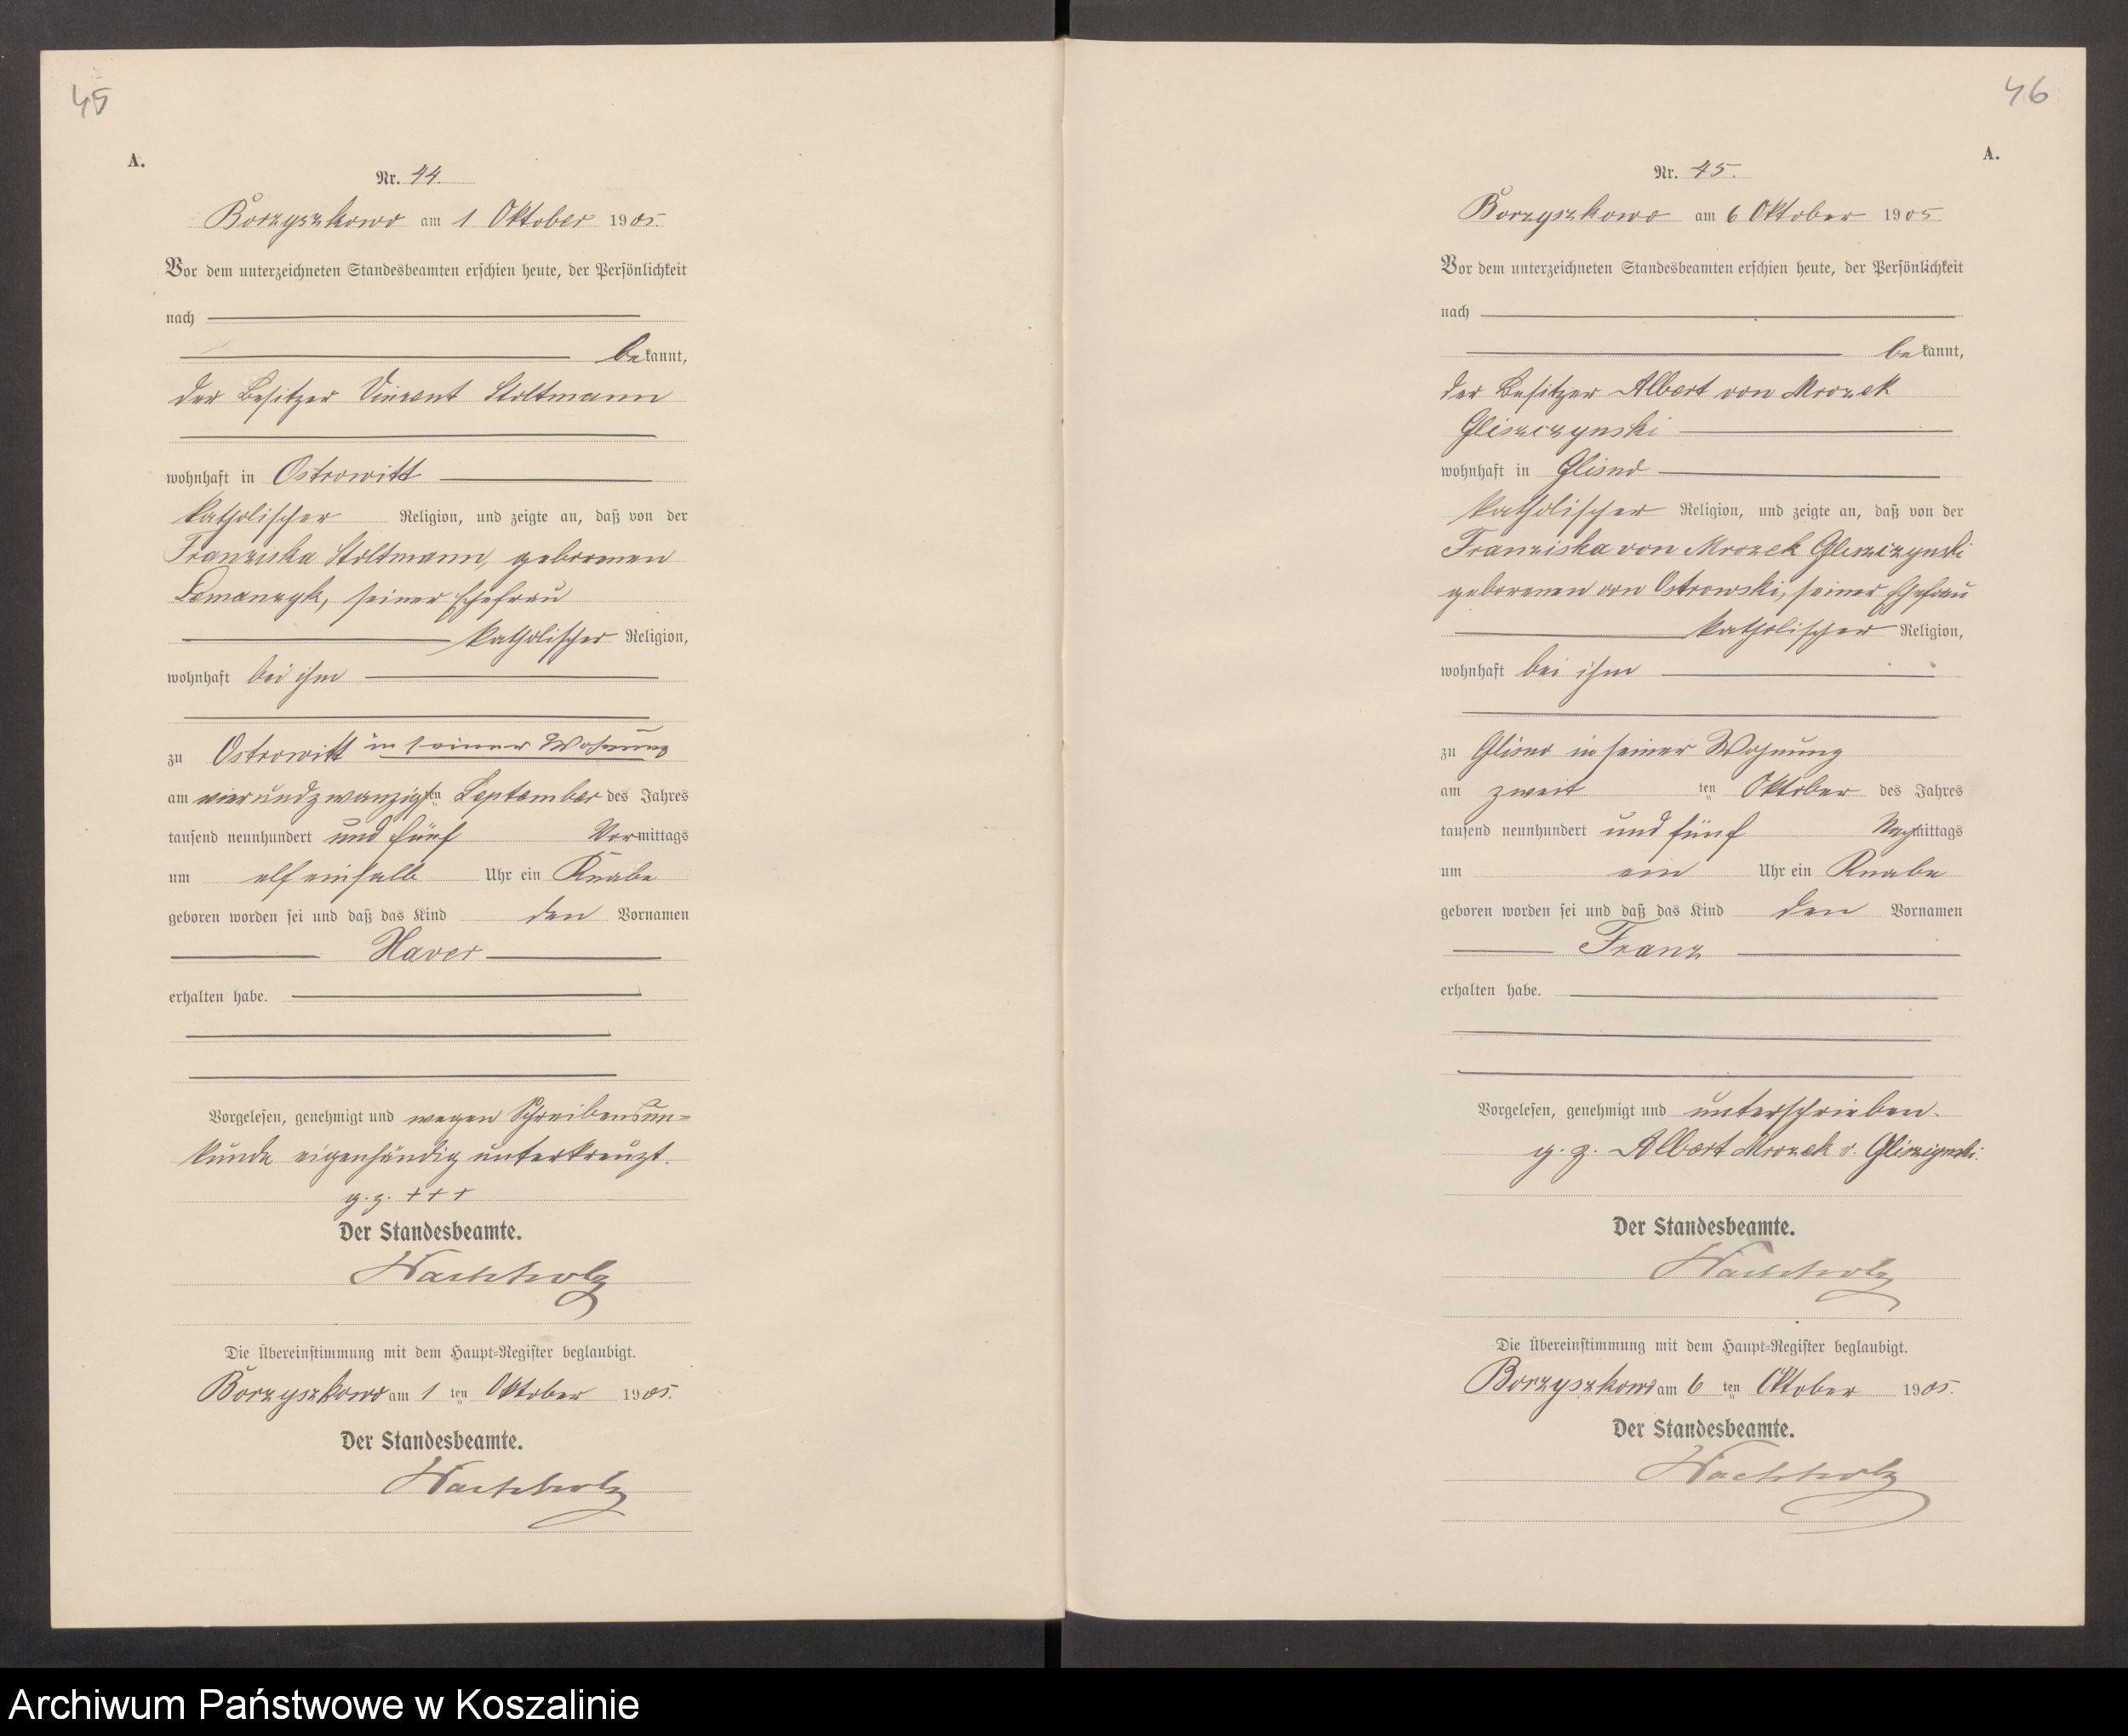 45
A.
Nr. 44.
Borzyszkowo am 1 Oktober 1905.
Vor dem unterzeichneten Standesbeamten erschien heute, der Persönlichkeit
nach
bekannt,
der Besitzer Vincent Stoltmann
wohnhaft in Ostrowitt
katholischer Religion, und zeigte an, daß von der
Franziska Stoltmann, geborenen
Lemanzyk, seiner Ehefrau
katholischer Religion,
wohnhaft bei ihm
zu Ostrowitt in seiner Wohnung
am vierundzwanzigsten September des Jahres
tausend neunhundert und fünf Vormittags
um elf einhalb Uhr ein Knabe
geboren worden sei und daß das Kind den Vornamen
Xaver
erhalten habe.
Vorgelesen, genehmigt und wegen Schreibensun-
kunde eigenhändig unterkreuzt.
g. z. +++
Der Standesbeamte.
Wachholz
Die Übereinstimmung mit dem Haupt-Register beglaubigt.
Borzyszkowo am 1 ten Oktober 1905.
Der Standesbeamte.
Wachholz
46
A.
Nr. 45.
Borzyszkowo am 6 Oktober 1905
Vor dem unterzeichneten Standesbeamten erschien heute, der Persönlichkeit
nach
bekannt,
der Besitzer Albert von Mrozek
Gliszczynski
wohnhaft in Glisno
katholischer Religion, und zeigte an, daß von der
Franziska von Mrozek Gliszczynski
geborenen von Ostrowski, seiner Ehefrau
katholischer Religion,
wohnhaft bei ihm
zu Glisno in seiner Wohnung
am zweit ten Oktober des Jahres
tausend neunhundert und fünf Nachmittags
um ein Uhr ein Knabe
geboren worden sei und daß das Kind den Vornamen
Franz
erhalten habe.
Vorgelesen, genehmigt und unterschrieben.
g. z. Albert Mrozek v. Gliszczynski.
Der Standesbeamte.
Wachholz
Die Übereinstimmung mit dem Haupt-Register beglaubigt.
Borzyszkowo am 6 ten Oktober 1905.
Der Standesbeamte.
Wachholz
Archiwum Państwowe w Koszalinie